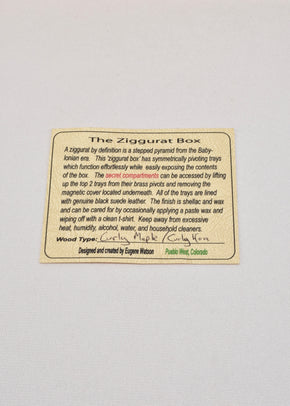 The Ziggurat Box
A ziggurat by definition is a stepped pyramid from the Baby-
lonian era. This 'ziggurat box' has symmetrically pivoting trays
which function effortlessly while easily exposing the contents
of the box. The secret compartments can be accessed by lifting
up the top 2 trays from their brass pivots and removing the
magnetic cover located underneath. All of the trays are lined
with genuine black suede leather. The finish is shellac and wax
and can be cared for by occasionally applying a paste wax and
wiping off with a clean t-shirt. Keep away from excessive
heat, humidity, alcohol, water, and household cleaners.
Wood Type: Curly Maple / Curly
Designed and created by Eugene Watson Pueblo West, Colorado